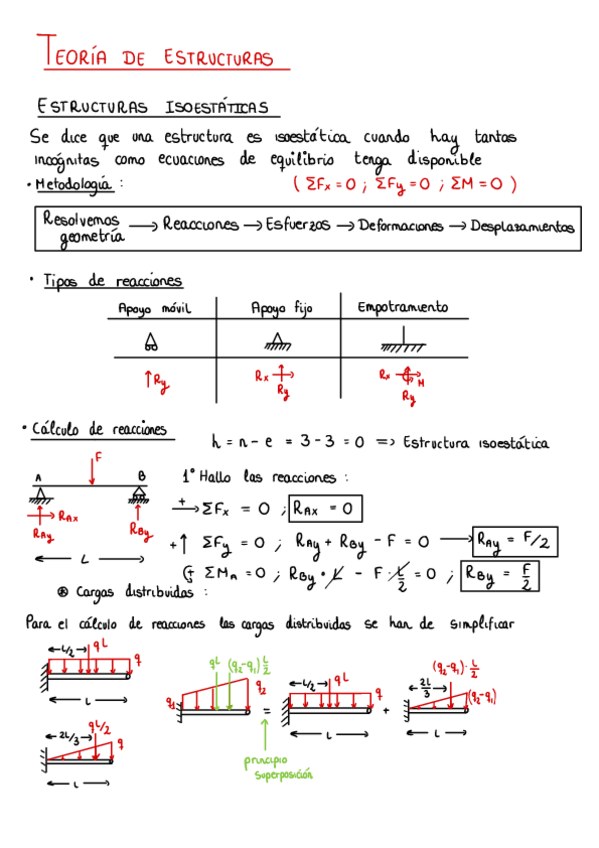 TEORÍA DE ESTRUCTURAS
ESTRUCTURAS ISOESTÁTICAS
Se dice que una estructura es isoestática cuando hay tantas
incógnitas como ecuaciones de equilibrio tenga disponible
• Metodología : ( ΣFx = 0 ; ΣFy = 0 ; ΣM = 0 )
Resolvemos geometría → Reacciones → Esfuerzos → Deformaciones → Desplazamientos
• Tipos de reacciones
Apoyo móvil Apoyo fijo Empotramiento
Ry Rx Ry Rx M Ry
• Cálculo de reacciones
h = n - e = 3 - 3 = 0 => Estructura isoestática
F
A B
RAx
RAy RBy
L
1° Hallo las reacciones :
+ → ΣFx = 0 ; RAx = 0
+ ↑ ΣFy = 0 ; RAy + RBy - F = 0 → RAy = F/2
+ ΣMA = 0 ; RBy • L - F · L/2 = 0 ; RBy = F/2
⊛ Cargas distribuidas :
Para el cálculo de reacciones las cargas distribuidas se han de simplificar
L/2 qL q
L
2L/3 qL/2 q
L
q1 qL (q2-q1) L/2 q2
=
L/2 qL q
L
+
2L/3 (q2-q1)· L/2 (q2-q1)
L
principio
superposición